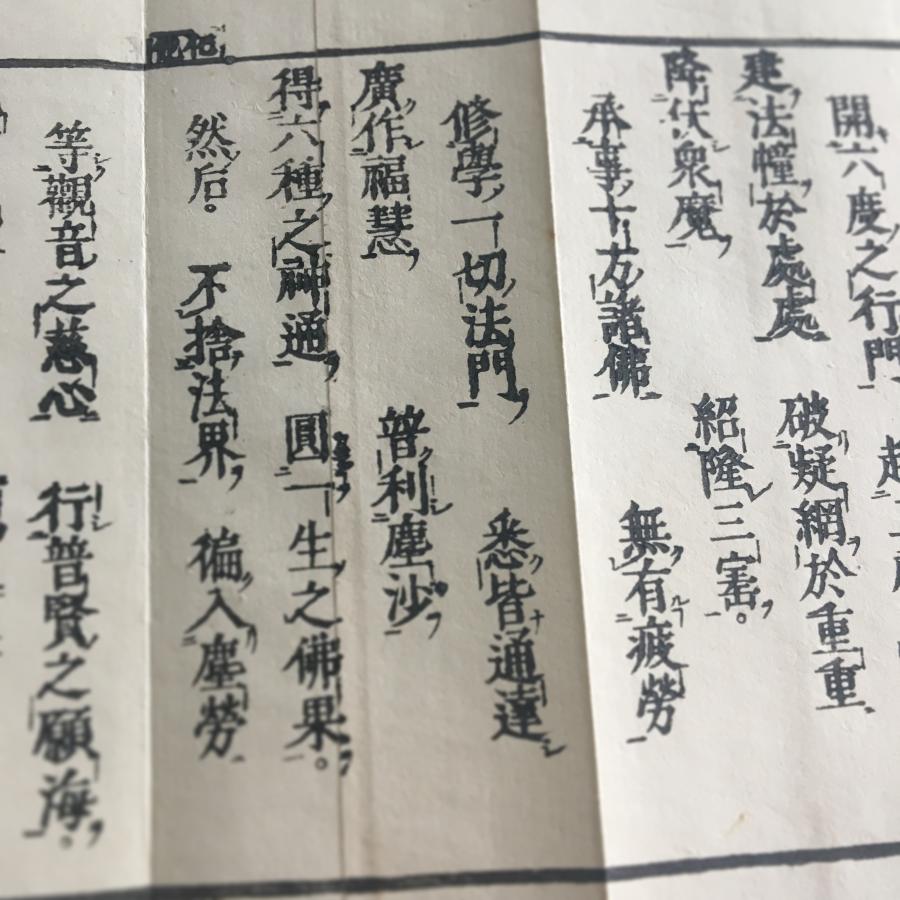 開六度之行門
建法幢於處處 破疑網於重重
降伏衆魔 紹隆三宝。
承事十方諸佛 無有疲勞
修學一切法門 悉皆通達
廣作福慧 普利塵沙
得六種之神通 圓一生之佛果。
然后。 不捨法界 徧入塵勞
等觀音之慈心 行普賢之願海。